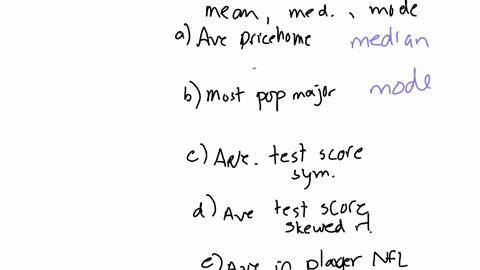 mean, med., mode
a) Ave price home median
b) most pop major mode
c) Ave. test score
sym.
d) Ave test score
skewed rt.
e) Ave in player NFL